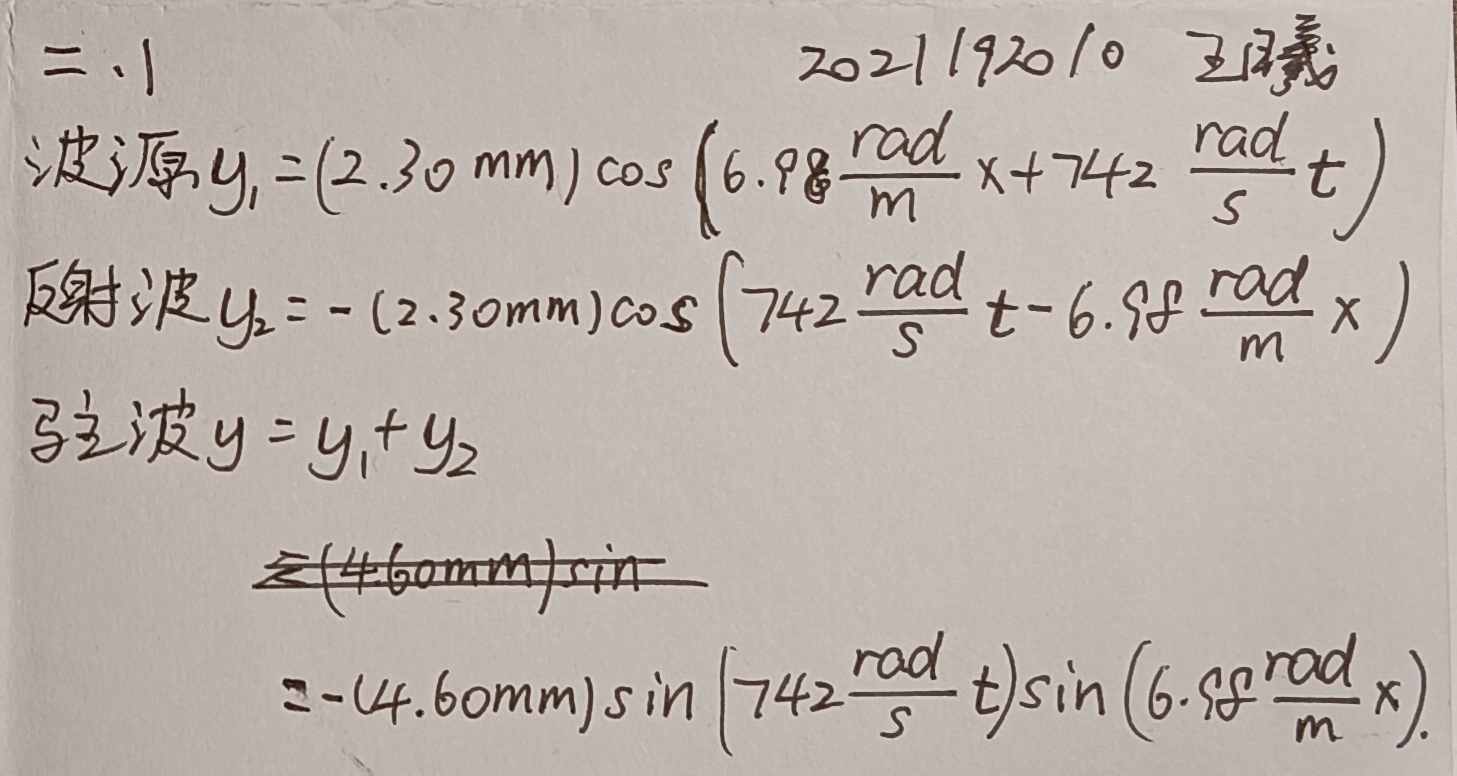 二、1 2021192010 王曦
波源y₁=(2.30 mm) cos(6.98 rad/m x+742 rad/s t)
反射波y₂=-(2.30mm)cos(742 rad/s t-6.98 rad/m x)
驻波y=y₁+y₂
=(4.60mm)sin
=-(4.60mm)sin(742 rad/s t)sin(6.98 rad/m x).